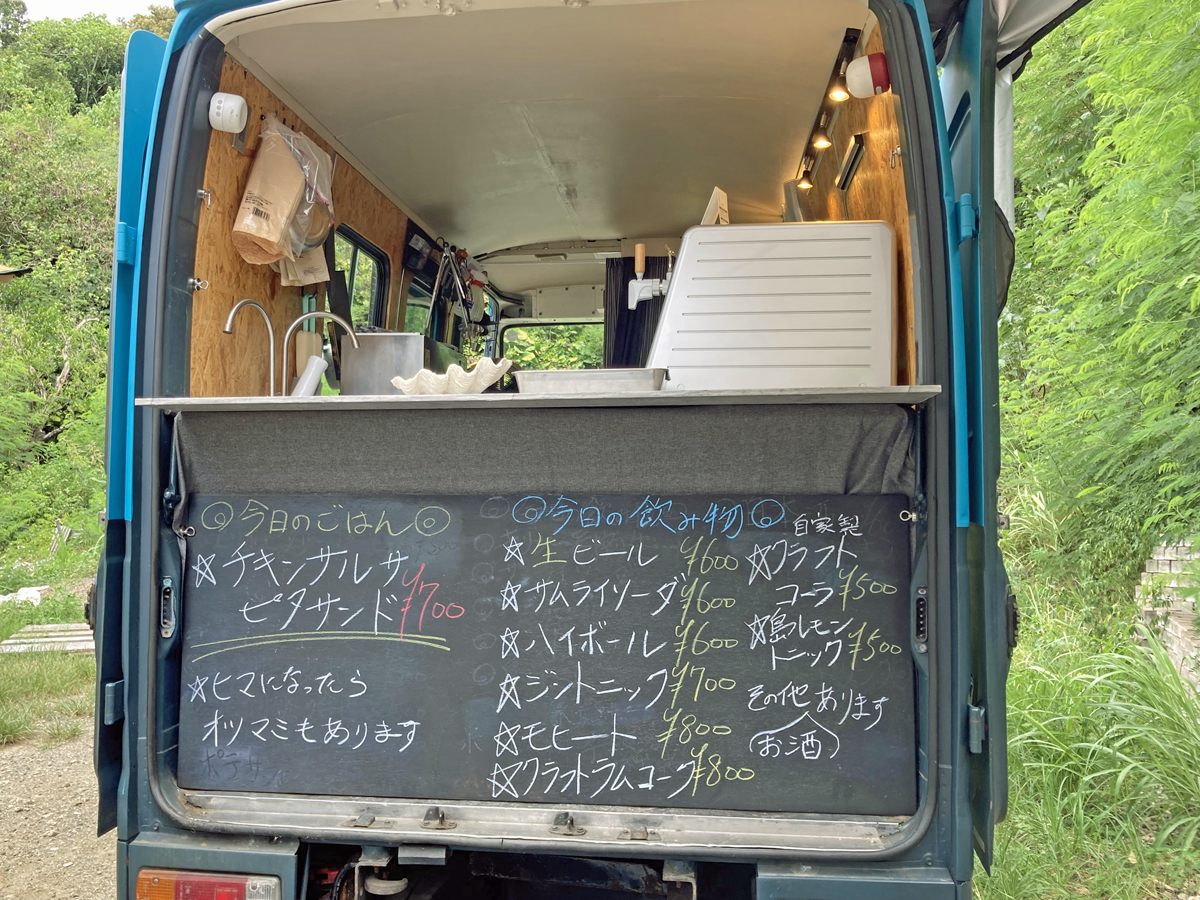 ◎今日のごはん◎
☆チキンサルサ
ピタサンド ¥700
☆ヒマになったら
オツマミもあります
◎今日の飲み物◎
☆生ビール ¥600
☆サムライソーダ ¥600
☆ハイボール ¥600
☆ジントニック ¥700
☆モヒート ¥800
☆クラフトラムコーク ¥800
自家製
☆クラフト
コーラ ¥500
☆島レモン
トニック ¥500
その他あります
(お酒)